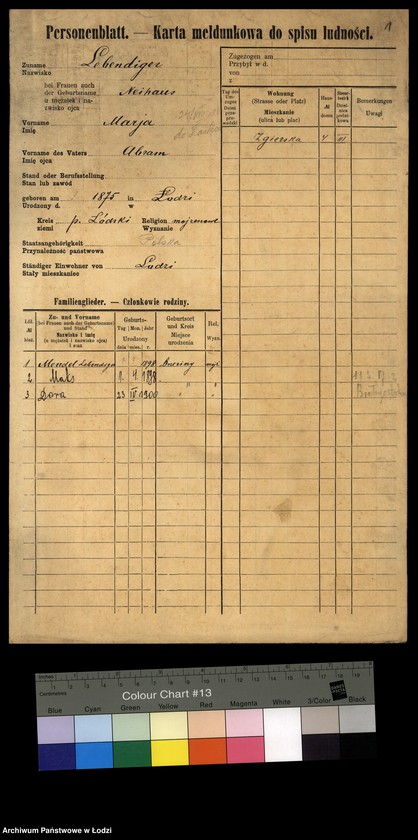 Personenblatt. — Karta meldunkowa do spisu ludności.
1
Zuname
Nazwisko
Lebendiger
bei Frauen auch
der Geburtsname
u mężatek i na-
zwisko ojca
Neihaus
Vorname
Imię
Marja
Vorname des Vaters
Imię ojca
Abram
Stand oder Berufsstellung
Stan lub zawód
geboren am 1875 in Łodzi
Urodzony d. w
Kreis
ziemi
p. Łódzki
Religion
Wyznanie
mojżeszowe
Staatsangehörigkeit
Przynależność państwowa
Polska
Ständiger Einwohner von
Stały mieszkaniec
Lodzi
Zugezogen am
Przybył w d.
von
z
Tag des
Um-
zuges
Dzień
prze-
prowadzki
Wohnung
(Strasse oder Platz)
Mieszkanie
(ulica lub plac)
Haus-
№
domu
Bemerkungen
Uwagi
Zgierska 4 III
Familienglieder. — Członkowie rodziny.
Zu- und Vorname
(bei Frauen auch der Geburtsname)
und Stand
Nazwisko i imię
(u mężatek i nazwisko ojca)
i stan
Geburts-
Tag Mon. Jahr
Urodzony
dnia mies. r.
Geburtsort
und Kreis
Miejsce
urodzenia
Rel.
Wyzn.
1 Mendel Lebendiger 1898
2 Maks 1. 4. 1898 " "
3 Dora 23 IV 1900 " "
Inches
Centimetres
Colour Chart #13
Blue Cyan Green Yellow Red Magenta White 3/Color Black
Archiwum Państwowe w Łodzi